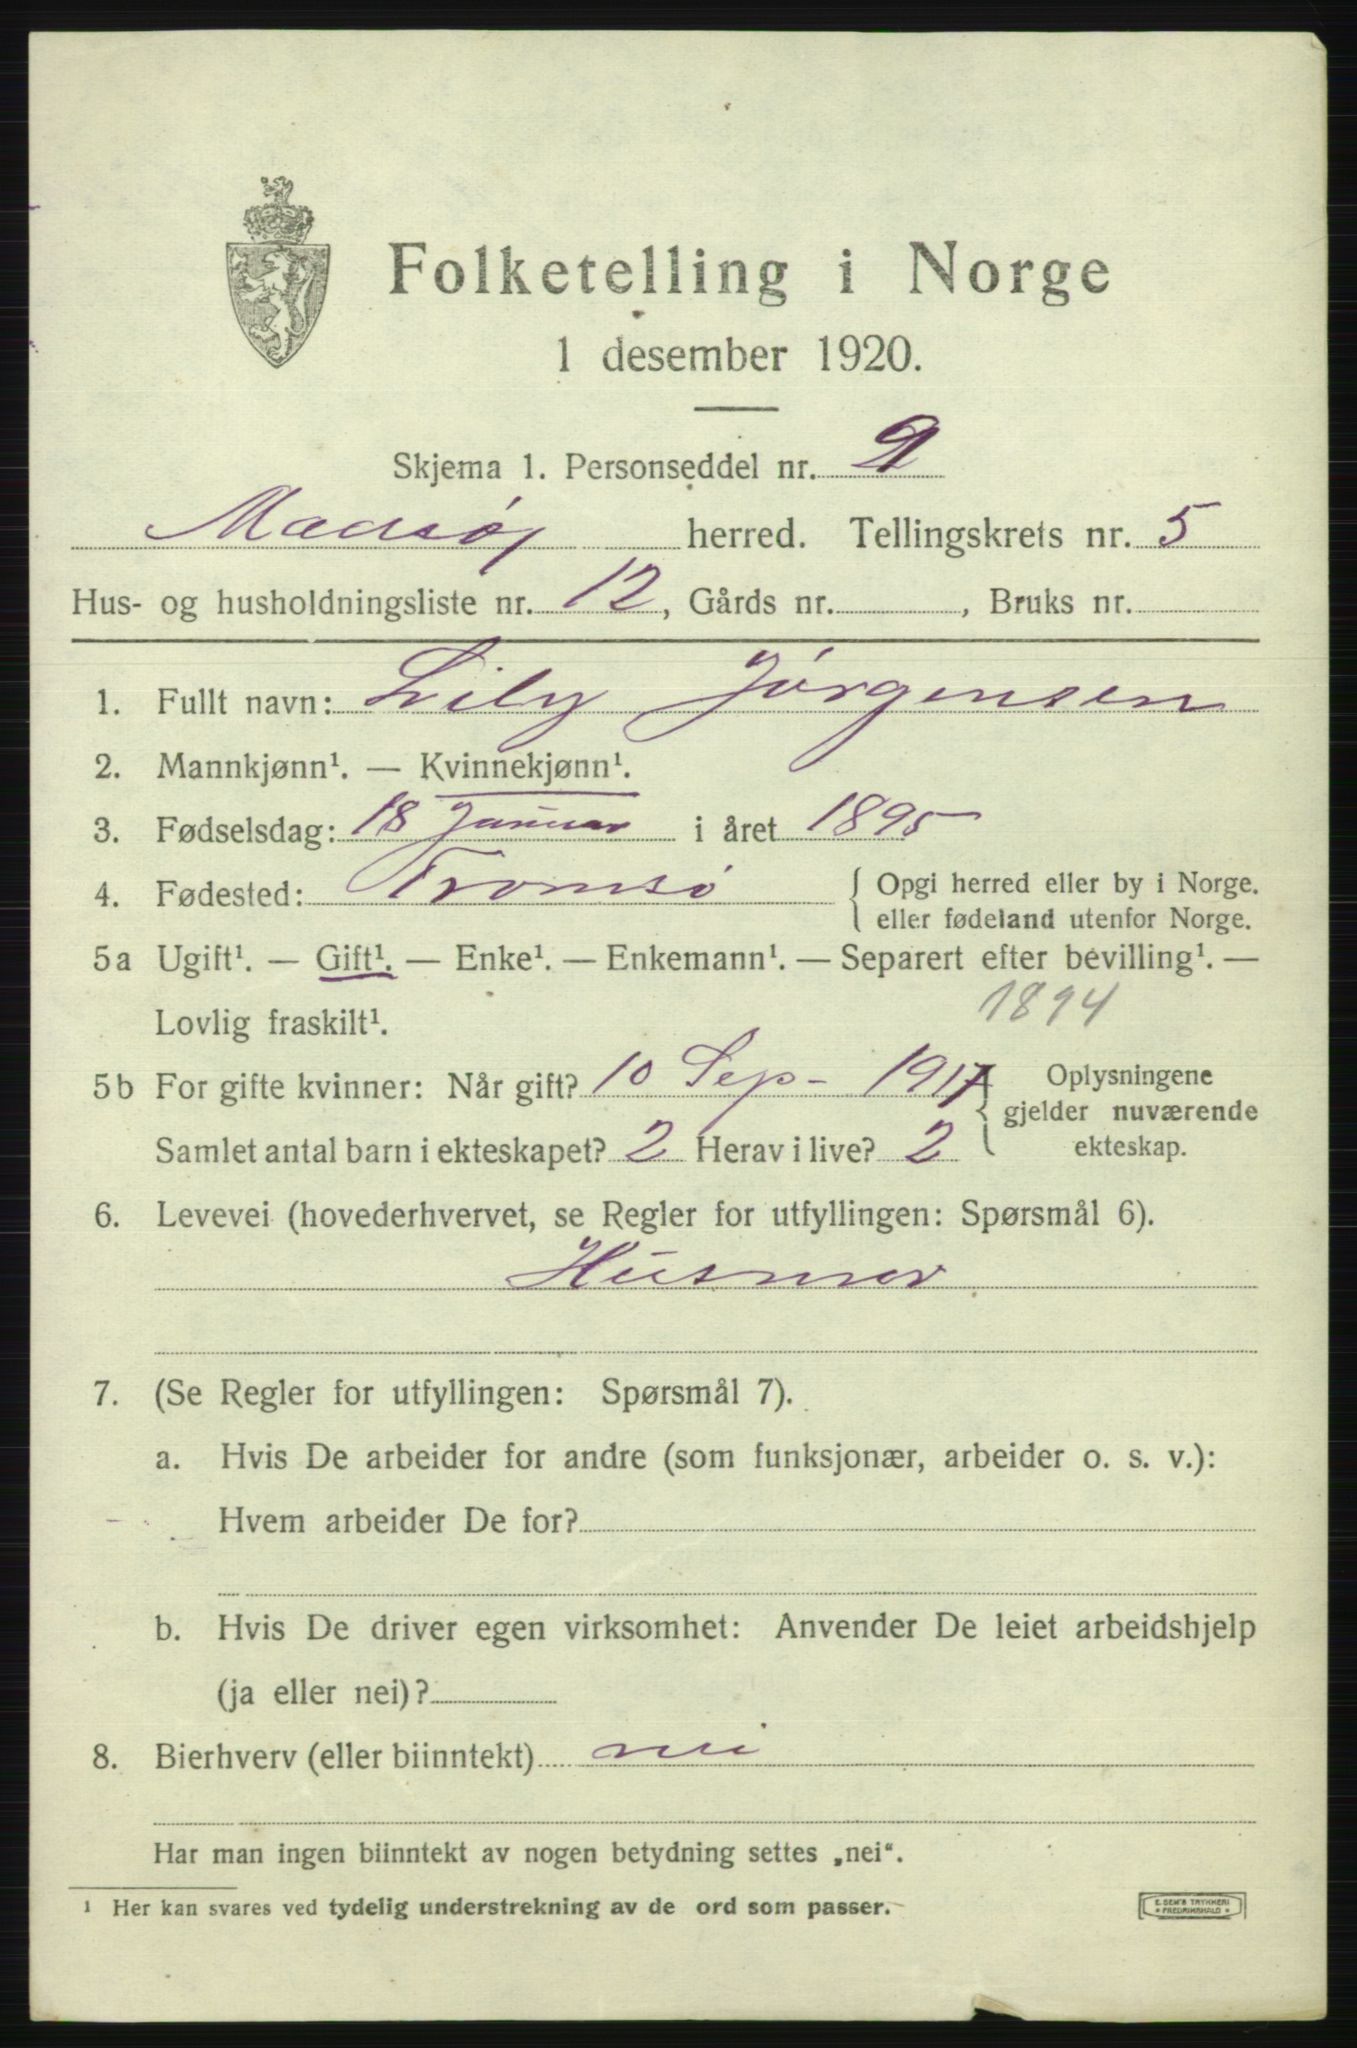 Folketelling i Norge
1 desember 1920.
Skjema 1. Personseddel nr. 2
Maasøy herred. Tellingskrets nr. 5
Hus- og husholdningsliste nr. 12, Gårds nr. , Bruks nr.
1. Fullt navn: Lily Jørgensen
2. Mannkjønn¹. — Kvinnekjønn¹.
3. Fødselsdag: 18 Januar i året 1895
4. Fødested: Tromsö { Opgi herred eller by i Norge.
eller fødeland utenfor Norge.
5a Ugift¹. — Gift¹. — Enke¹. — Enkemann¹. — Separert efter bevilling¹. —
Lovlig fraskilt¹. 1894
5b For gifte kvinner: Når gift? 10 Sep - 1917 { Oplysningene
gjelder nuværende
Samlet antal barn i ekteskapet? 2 Herav i live? 2 ekteskap.
6. Levevei (hovederhvervet, se Regler for utfyllingen: Spørsmål 6).
Husmor
7. (Se Regler for utfyllingen: Spørsmål 7).
a. Hvis De arbeider for andre (som funksjonær, arbeider o. s. v.):
Hvem arbeider De for?
b. Hvis De driver egen virksomhet: Anvender De leiet arbeidshjelp
(ja eller nei)?
8. Bierhverv (eller biinntekt) nei
Har man ingen biinntekt av nogen betydning settes „nei“.
¹ Her kan svares ved tydelig understrekning av de ord som passer.
E. SEM'S TRYKKERI
* FREDRIKSHALD *